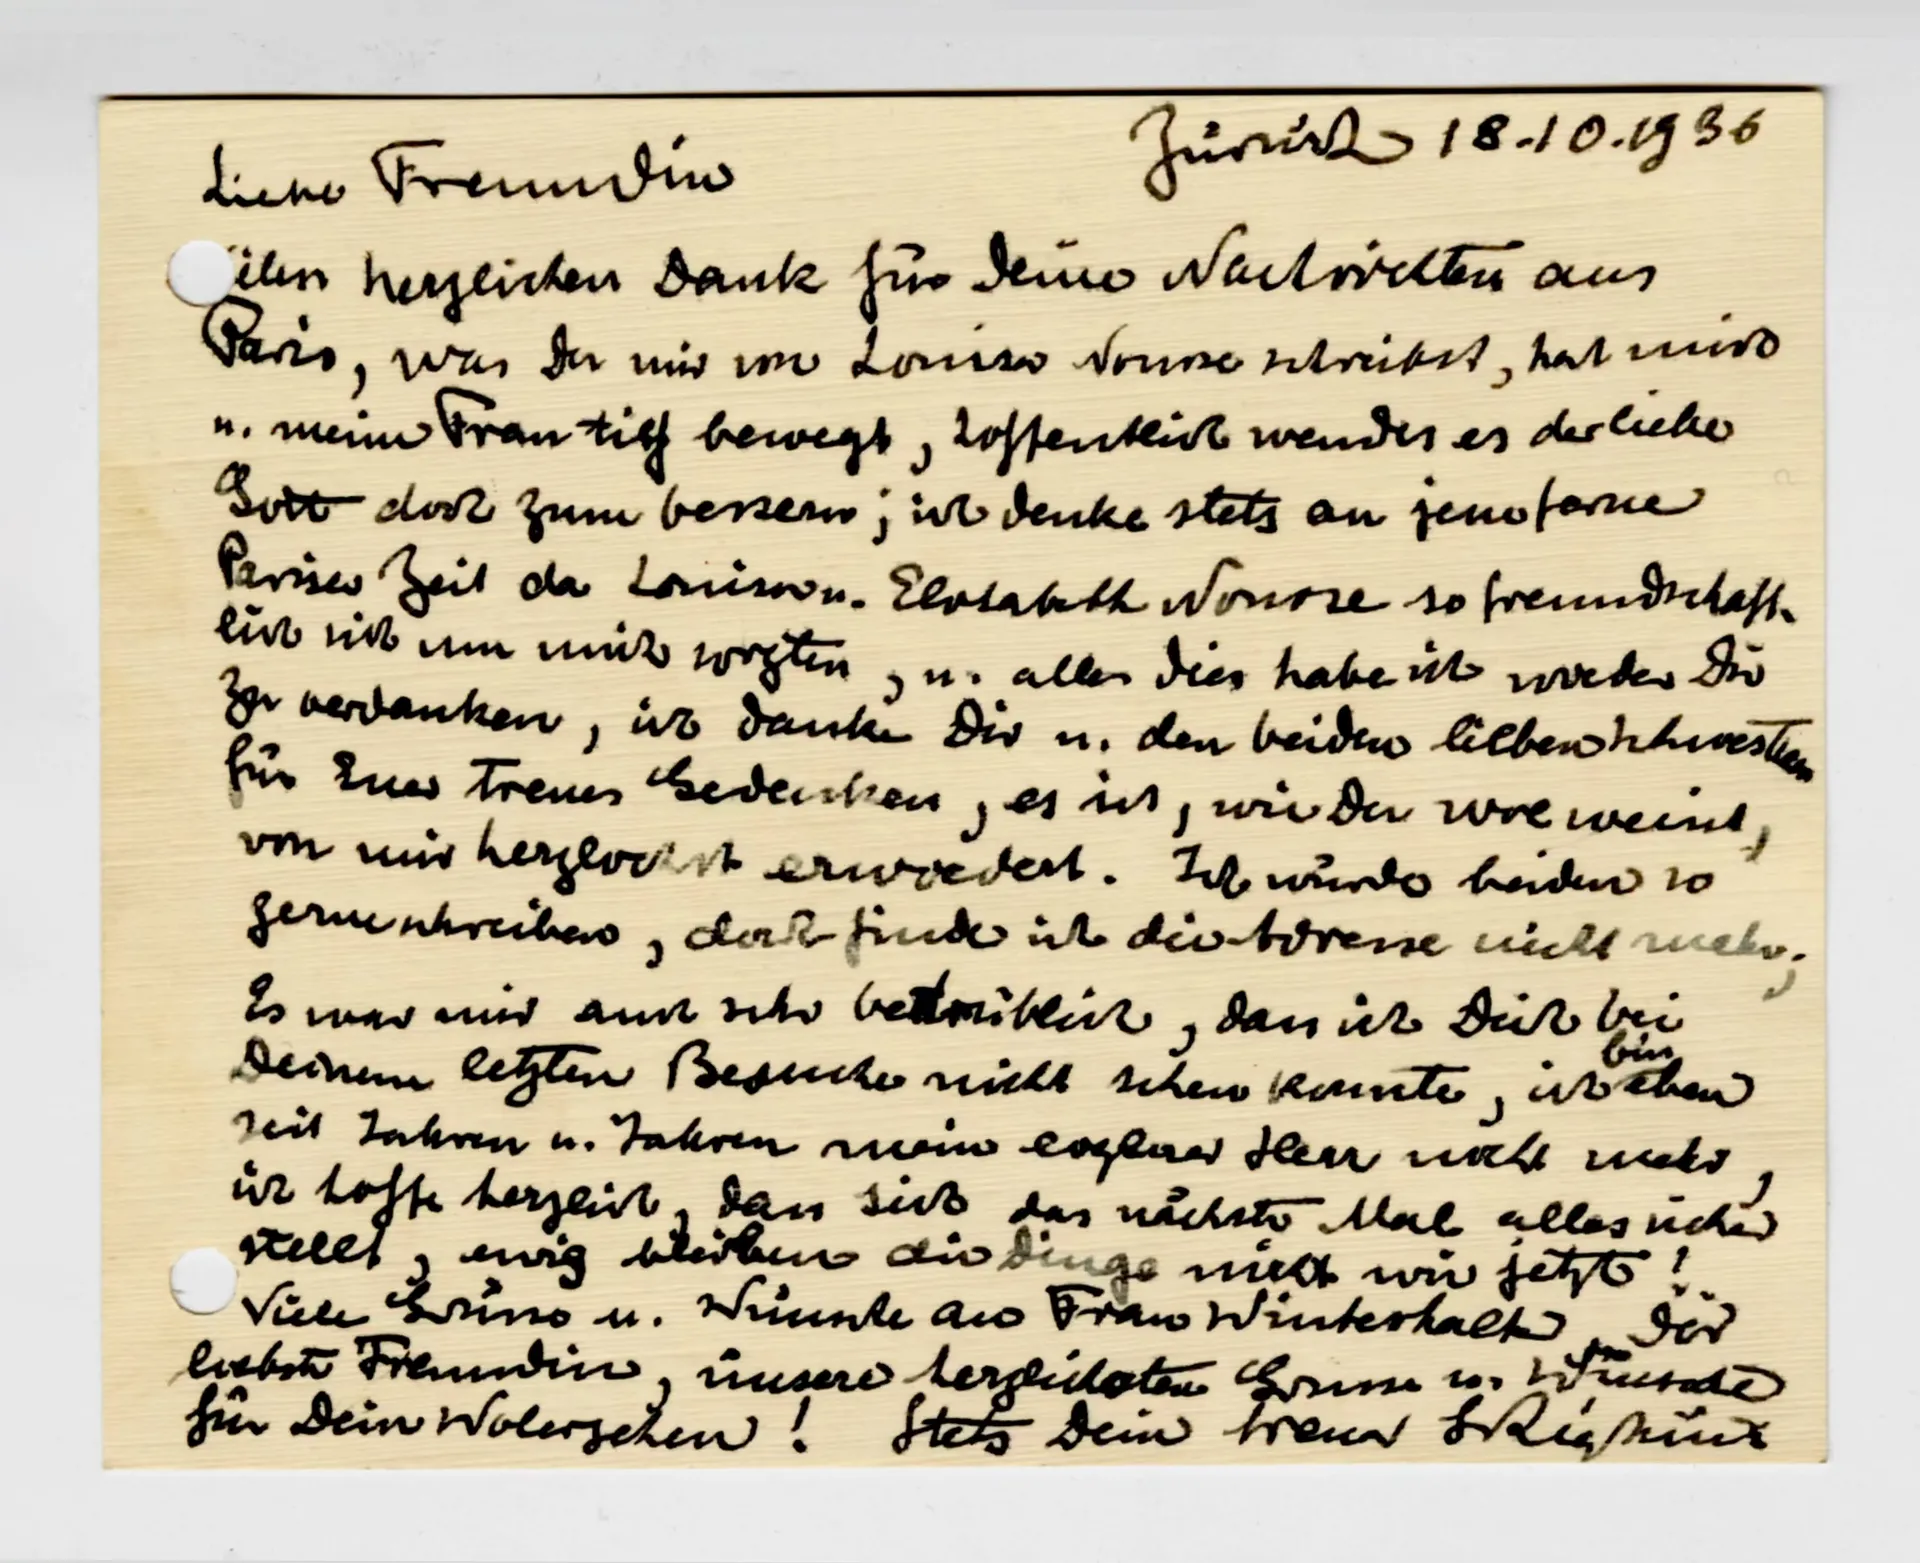 Zürich 18.10.1936
Liebe Freundin
ielen herzlichen Dank für Deine Nachrichten aus
Paris, was Du mir von Louise Nourse schreibst, hat mich
u. meine Frau tief bewegt, hoffentlich wendet es der liebe
Gott doch zum bessern; ich denke stets an jene ferne
Pariser Zeit da Louise u. Elisabeth Nourse so freundschaft-
lich sich um mich sorgten, u. alles dies habe ich wieder Dir
zu verdanken, ich danke Dir u. den beiden lieben Schwestern
für Euer treues Gedenken, es ist, wie Du wol weisst,
von mir herzlichst erwiedert. Ich würde beiden so
gerne schreiben, doch finde ich die Adresse nicht mehr;
Es war mir auch sehr betrüblich, dass ich Dich bei
Deinem letzten Besuche nicht sehen konnte, ich bin eben
seit Jahren u. Jahren mein eigener Herr nicht mehr,
ich hoffe herzlich, dass sich das nächste Mal alles sicher
stellt, ewig bleiben die Dinge nicht wie jetzt!
Viele Grüsse u. Wünsche an Frau Winterhalter, Dir
liebste Freundin, unsere herzlichsten Grüsse u. Wünsche
für Dein Wolergehen! Stets Dein treuer